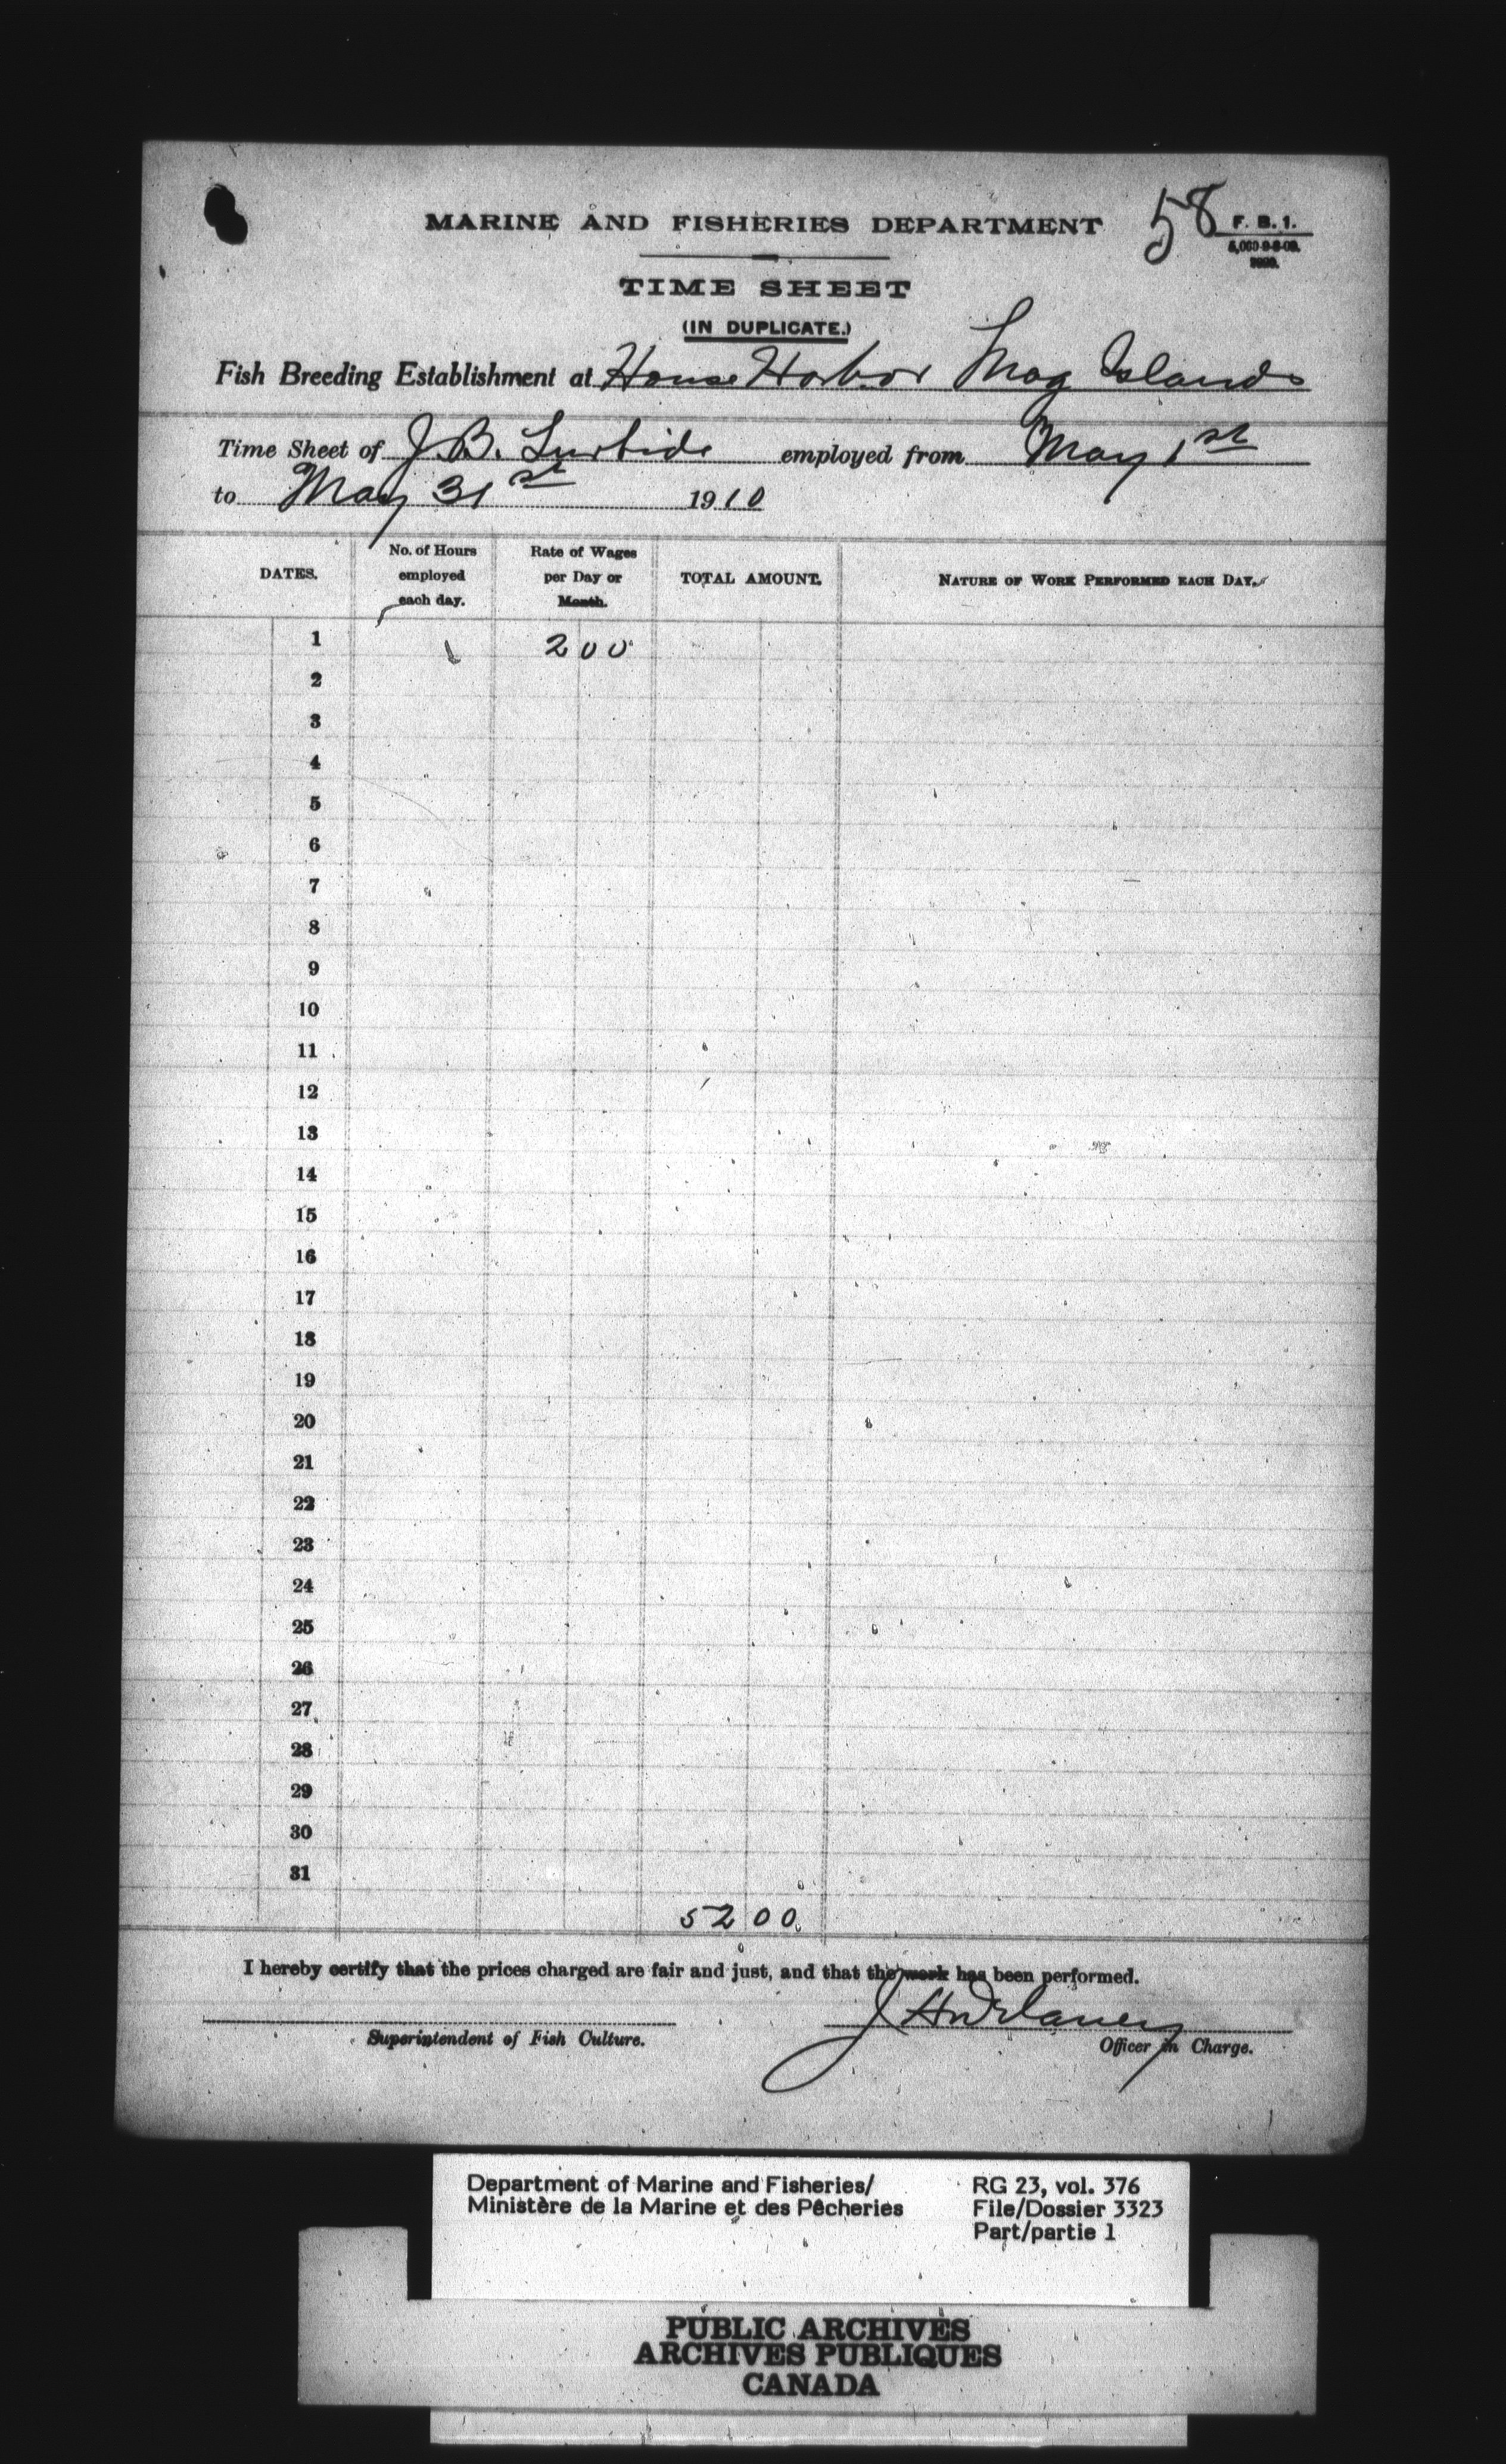 MARINE AND FISHERIES DEPARTMENT
58
F. B. 1.
TIME SHEET
(IN DUPLICATE.)
Fish Breeding Establishment at House Harbor Mag Islands
Time Sheet of J. B. employed from May 1st
to May 31st 1910
DATES.
No. of Hours employed each day.
Rate of Wages per Day or Month.
TOTAL AMOUNT.
NATURE OF WORK PERFORMED EACH DAY.
1 2 00
2
3
4
5
6
7
8
9
10
11
12
13
14
15
16
17
18
19
20
21
22
23
24
25
26
27
28
29
30
31
52 00
I hereby certify that the prices charged are fair and just, and that the work has been performed.
Superintendent of Fish Culture.
Officer in Charge.
Department of Marine and Fisheries/
Ministère de la Marine et des Pêcheries
RG 23, vol. 376
File/Dossier 3323
Part/partie 1
PUBLIC ARCHIVES
ARCHIVES PUBLIQUES
CANADA